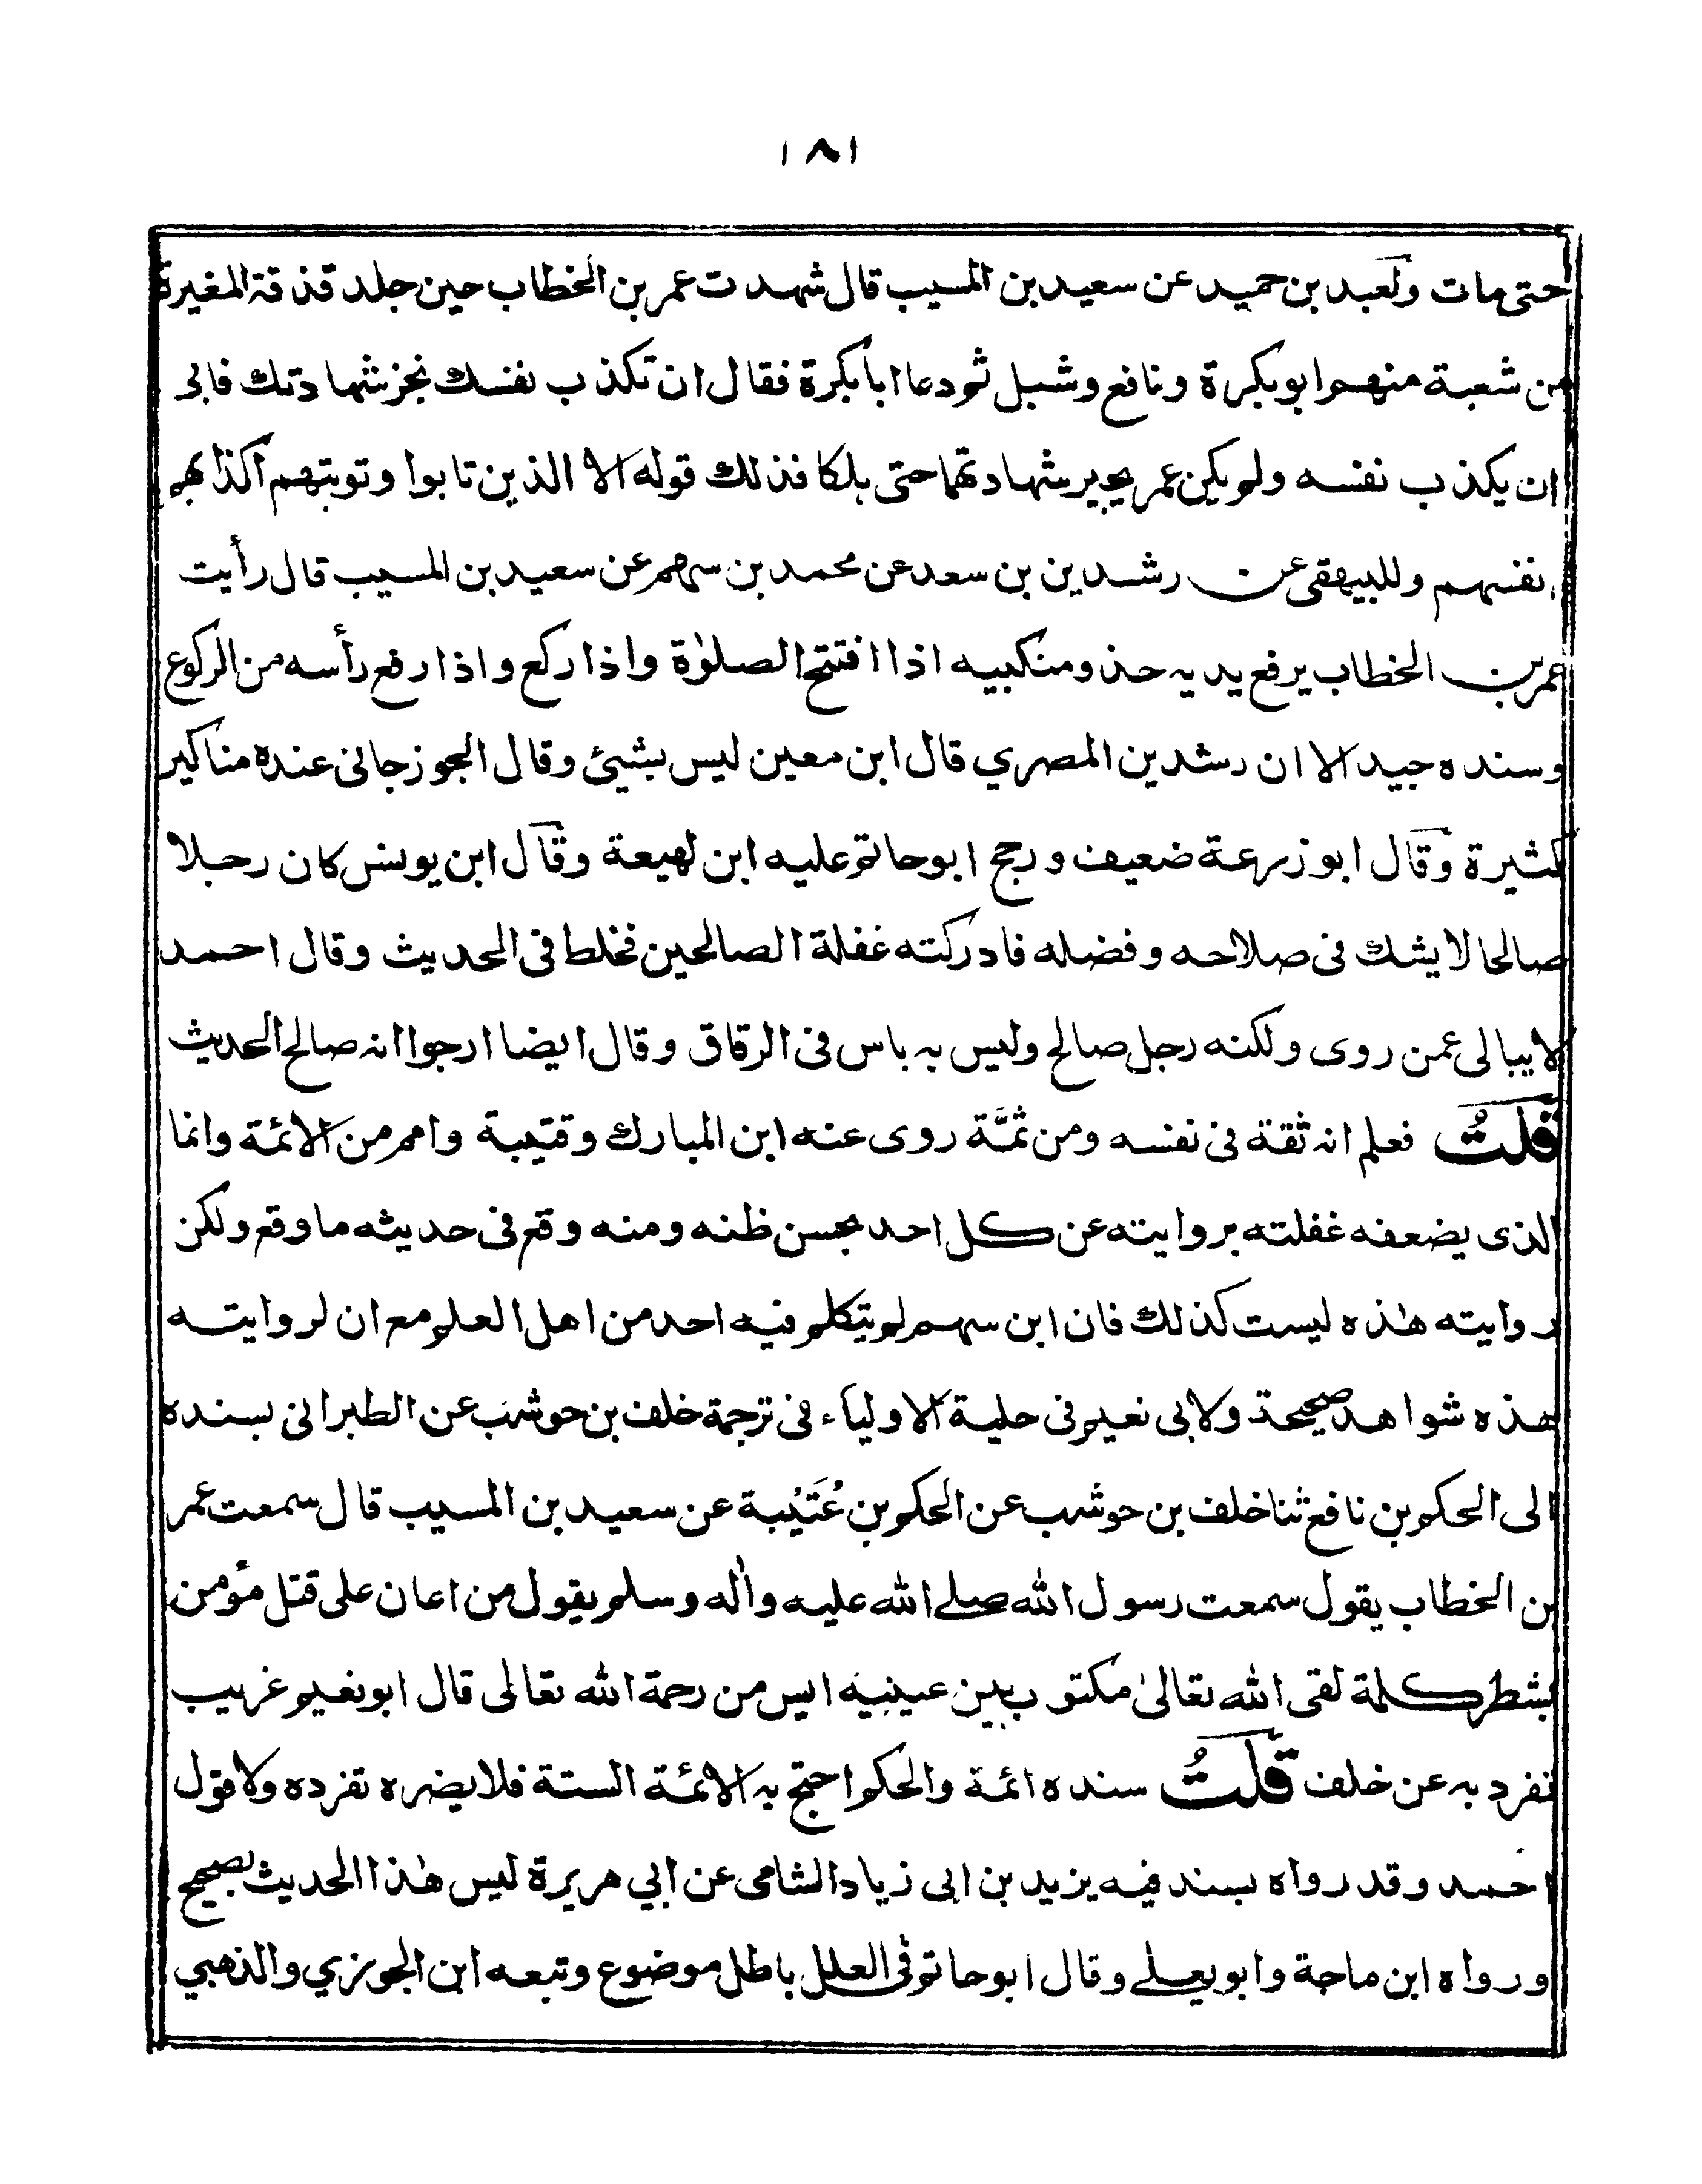 ١٨١
حتى مات ولعبد بن حميد عن سعيد بن المسيب قال شهدت عمر بن الخطاب حين جلد قذفة المغيرة
من شعبة منهم ابو بكرة ونافع وشبل ثم دعا ابا بكرة فقال ان تكذب نفسك نجز شهادتك فابى
ان يكذب نفسه ولم يكن عمر يجيز شهادتهما حتى هلكا فذلك قوله الا الذين تابوا وتوبتهم اكذابهم
انفسهم وللبيهقى عن رشدين بن سعد عن محمد بن سهم عن سعيد بن المسيب قال رأيت
عمر بن الخطاب يرفع يديه حذو منكبيه اذا افتتح الصلوٰة واذا ركع واذا رفع رأسه من الركوع
وسنده جيد الا ان رشدين المصري قال ابن معين ليس بشيئ وقال الجوزجانى عنده مناكير
كثيرة وقال ابو زرعة ضعيف ورجح ابو حاتم عليه ابن لهيعة وقال ابن يونس كان رجلا
صالحا لا يشك فى صلاحه وفضله فادركته غفلة الصالحين فخلط فى الحديث وقال احمد
لا يبالى عمن روى ولكنه رجل صالح وليس به باس فى الرقاق وقال ايضا ارجوا انه صالح الحديث
قلتُ فعلم انه ثقة فى نفسه ومن ثمَّة روى عنه ابن المبارك وقتيبة وامم من الائمة وانما
الذى يضعفه غفلته بروايته عن كل احد بحسن ظنه ومنه وقع فى حديثه ما وقع ولكن
روايته هٰذه ليست كذلك فان ابن سهم لم يتكلم فيه احد من اهل العلم مع ان لروايته
هذه شواهد صحيحة ولابى نعيم فى حلية الاولياء فى ترجمة خلف بن حوشب عن الطبرانى بسنده
الى الحكم بن نافع ثنا خلف بن حوشب عن الحكم بن عُتَيْبة عن سعيد بن المسيب قال سمعت عمر
بن الخطاب يقول سمعت رسول الله صلے الله عليه واٰله وسلم يقول من اعان على قتل مؤمن
بشطر كلمة لقى الله تعالىٰ مكتوب بين عينيه ايس من رحمة الله تعالى قال ابو نعيم غريب
تفرد به عن خلف قلتُ سنده ائمة والحكم احتج به الائمة الستة فلا يضره تفرده ولا قول
احمد وقد رواه بسند فيه يزيد بن ابى زياد الشامى عن ابي هريرة ليس هٰذا الحديث بصحيح
ورواه ابن ماجة وابو يعلے وقال ابو حاتم فى العلل باطل موضوع وتبعه ابن الجوزي والذهبي